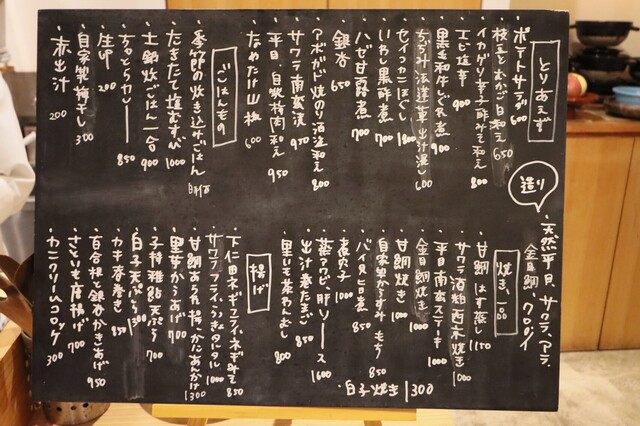 とりあえず
ポテトサラダ 600
枝豆とむかご白和え 650
イカゲソ辛子酢みそ和え 800
エビ塩辛 900
黒毛和牛しぐれ煮 900
ちぢみ法蓮草出汁浸し 600
セイコカニほぐし 1800
いわし黒酢煮 700
ハゼ甘露煮 700
銀杏 650
アボカド焼のり酒盗和え 800
サワラ南蛮漬 950
平目、自家製梅肉和え 950
なめたけ山椒 600
ごはんもの
季節の炊き込みごはん 時価
たきたて塩むすび 1000
土鍋炊ごはん一合 900
するとらカレー 850
生卵 200
自家製梅干し 300
赤出汁 200
造り
天然平目、サワラ、アラ、
金目鯛、クロムツ
焼き、一品
甘鯛はす蒸し 1150
サワラ酒粕西京焼き 1000
平目南蛮ステーキ 1000
金目鯛焼き
甘鯛焼き 1000
自家製からすみもち 850
バイ貝旨煮 850
煮穴子 1000
蒸アワビ、肝ソース 1600
出汁巻たまご 850
黒毛茶わんむし 800
白子焼き 1300
揚げ
下仁田ネギフライ、ネギみそ 850
サワラフライ、うずらタルタル 1000
甘鯛あられ揚、かにあんかけ 1300
里芋からあげ 700
子持稚鮎天ぷら 700
白子天ぷら 1300
カキ春巻き 850
百合根と銀杏かきあげ 950
さといも唐揚げ 700
カニクリームコロッケ 300